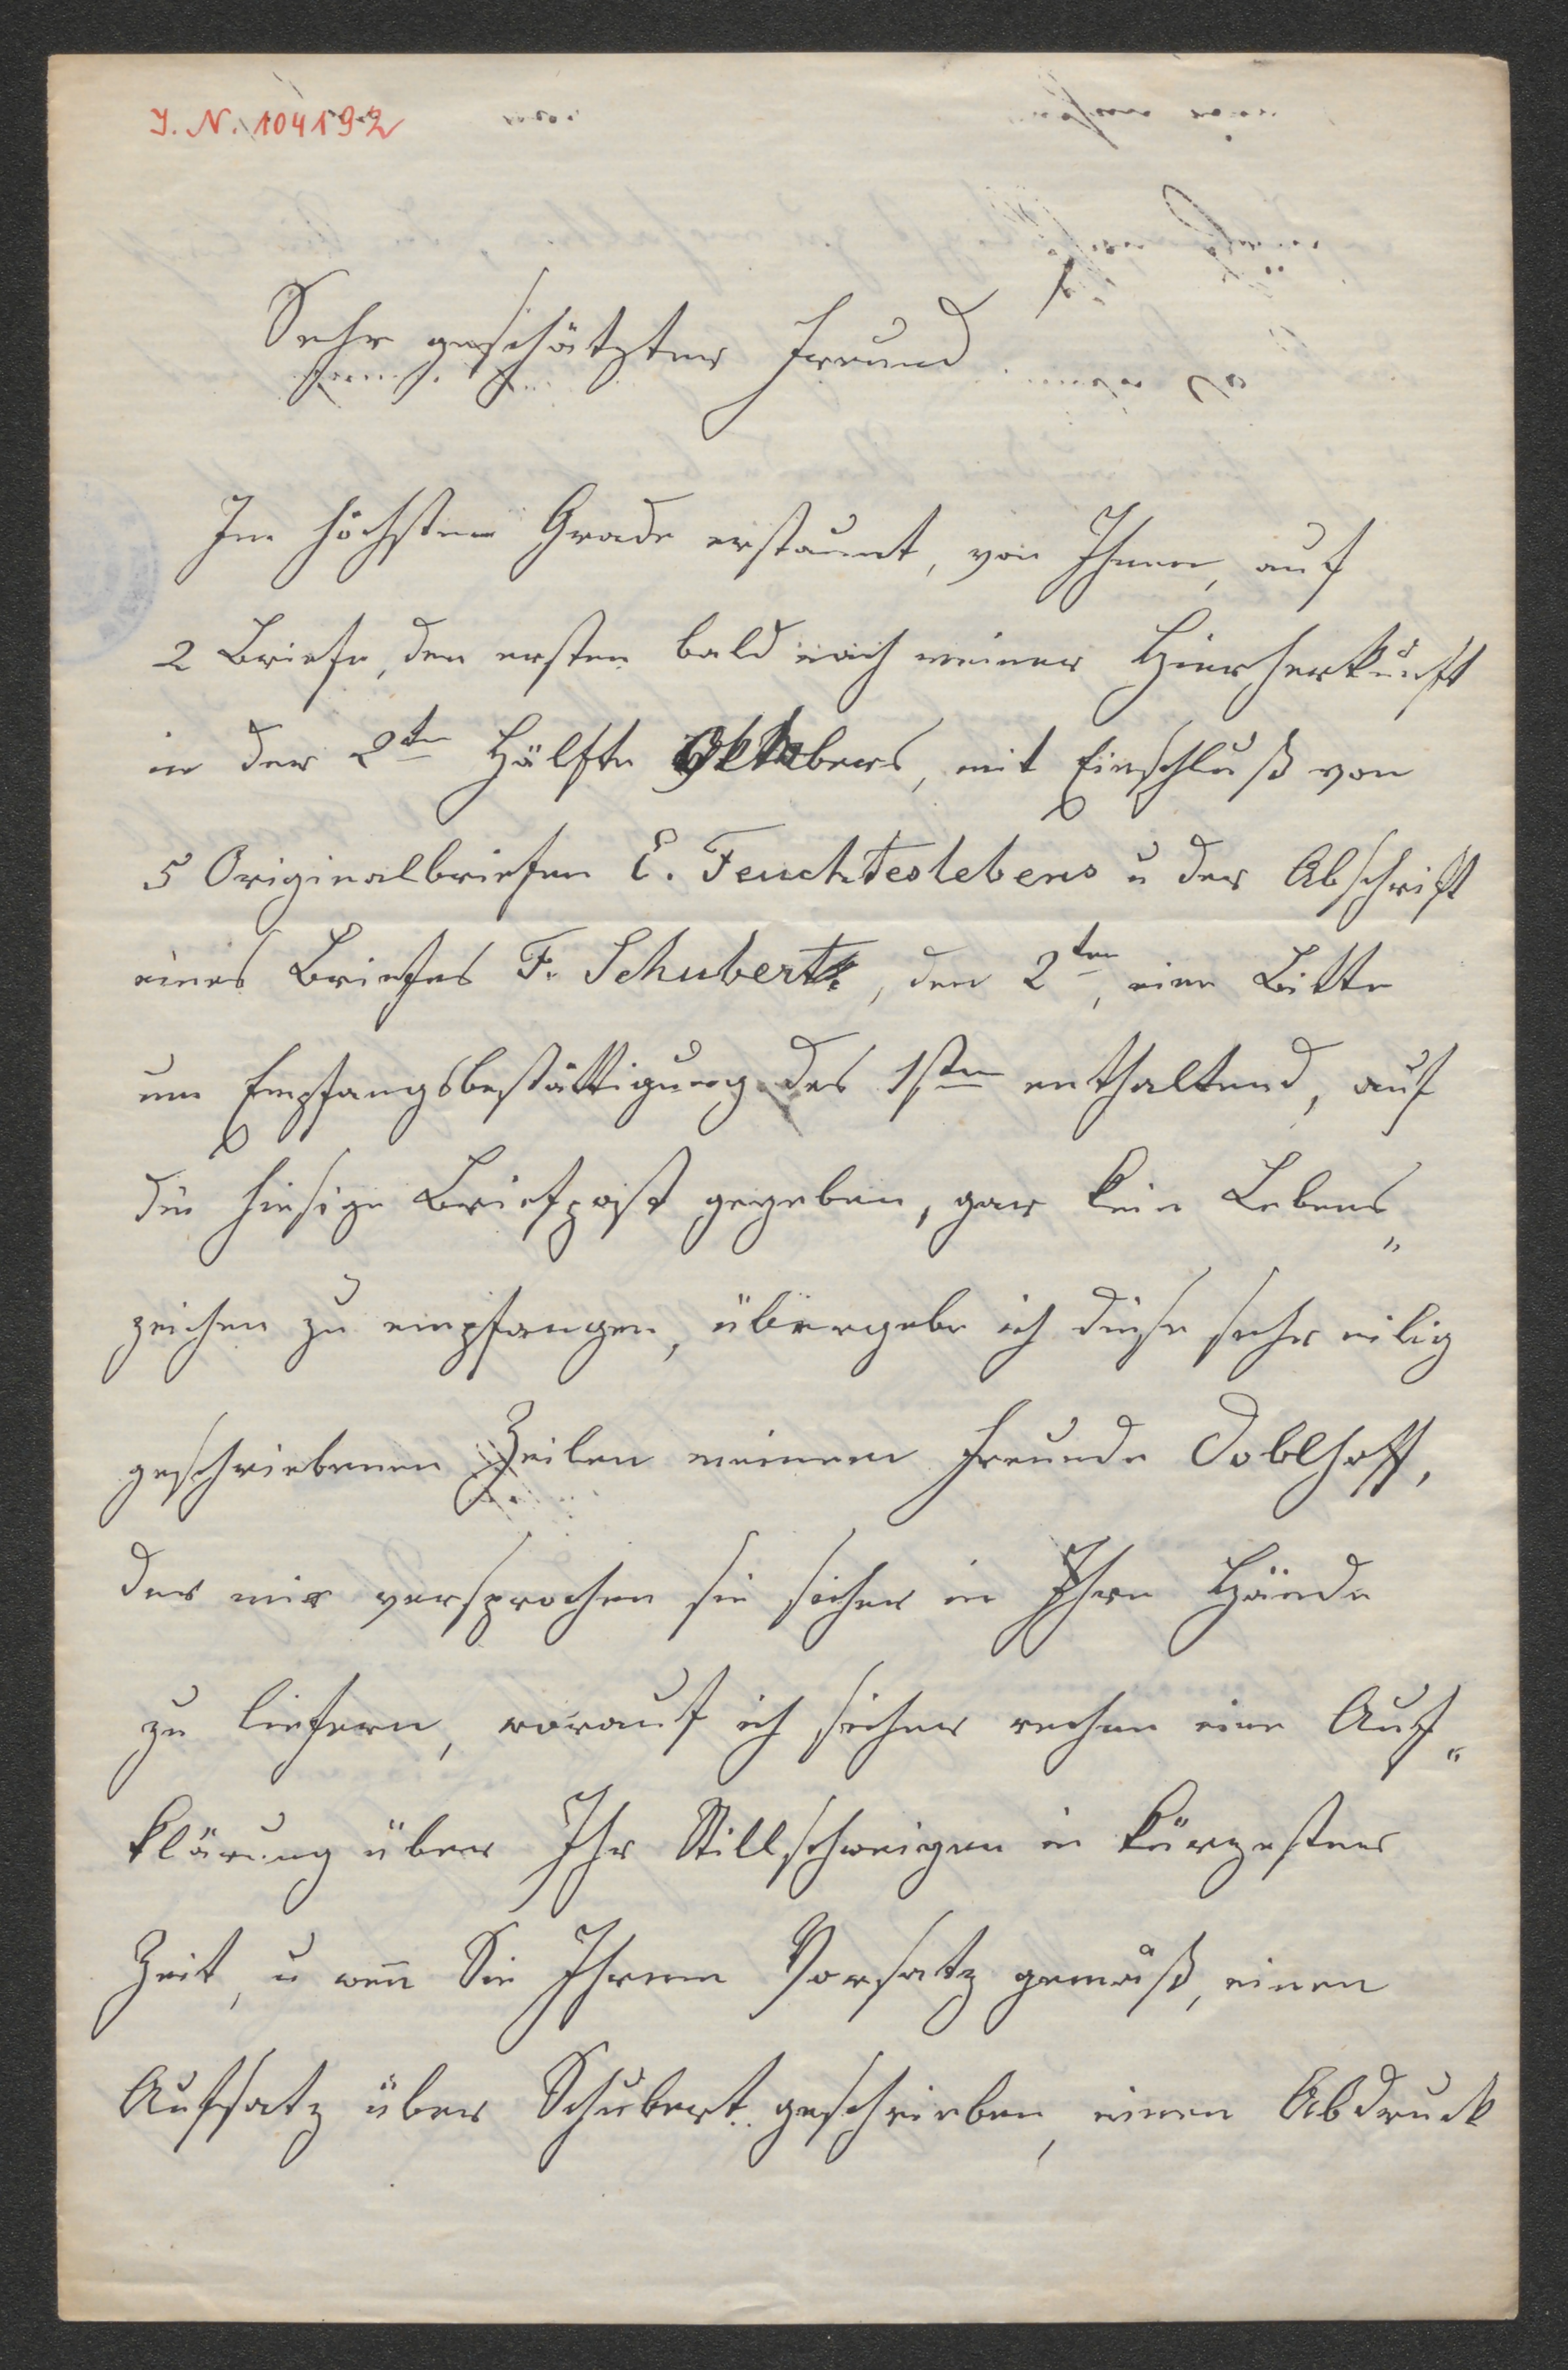 I. N. 104192
Sehr geschätzter Freund
Im höchsten Grade erstaunt, von Ihnen, auf
2 Briefe, den ersten bald nach meiner Hierherkunft
in der 2ten Hälfte Oktobers, mit Einschluß von
5 Originalbriefen E. Feuchterslebens u der Abschrift
eines Briefes F. Schuberts, den 2ten, eine Bitte
um Empfangsbestättigung des 1sten enthaltend, auf
die hiesige Briefpost gegeben, gar kein Lebens„
zeichen zu empfangen, übergebe ich diese sehr eilig
geschriebenen Zeilen meinem Freunde Doblhoff,
der mir versprochen sie sicher in Ihre Hände
zu liefern, worauf ich sicher rechne eine Auf„
klärung über Ihr Stillschweigen in kürzester
Zeit, u wen̅ Sie Ihrem Vorsatz gemäß, einen
Aufsatz über Schubert geschrieben, einen Abdruck